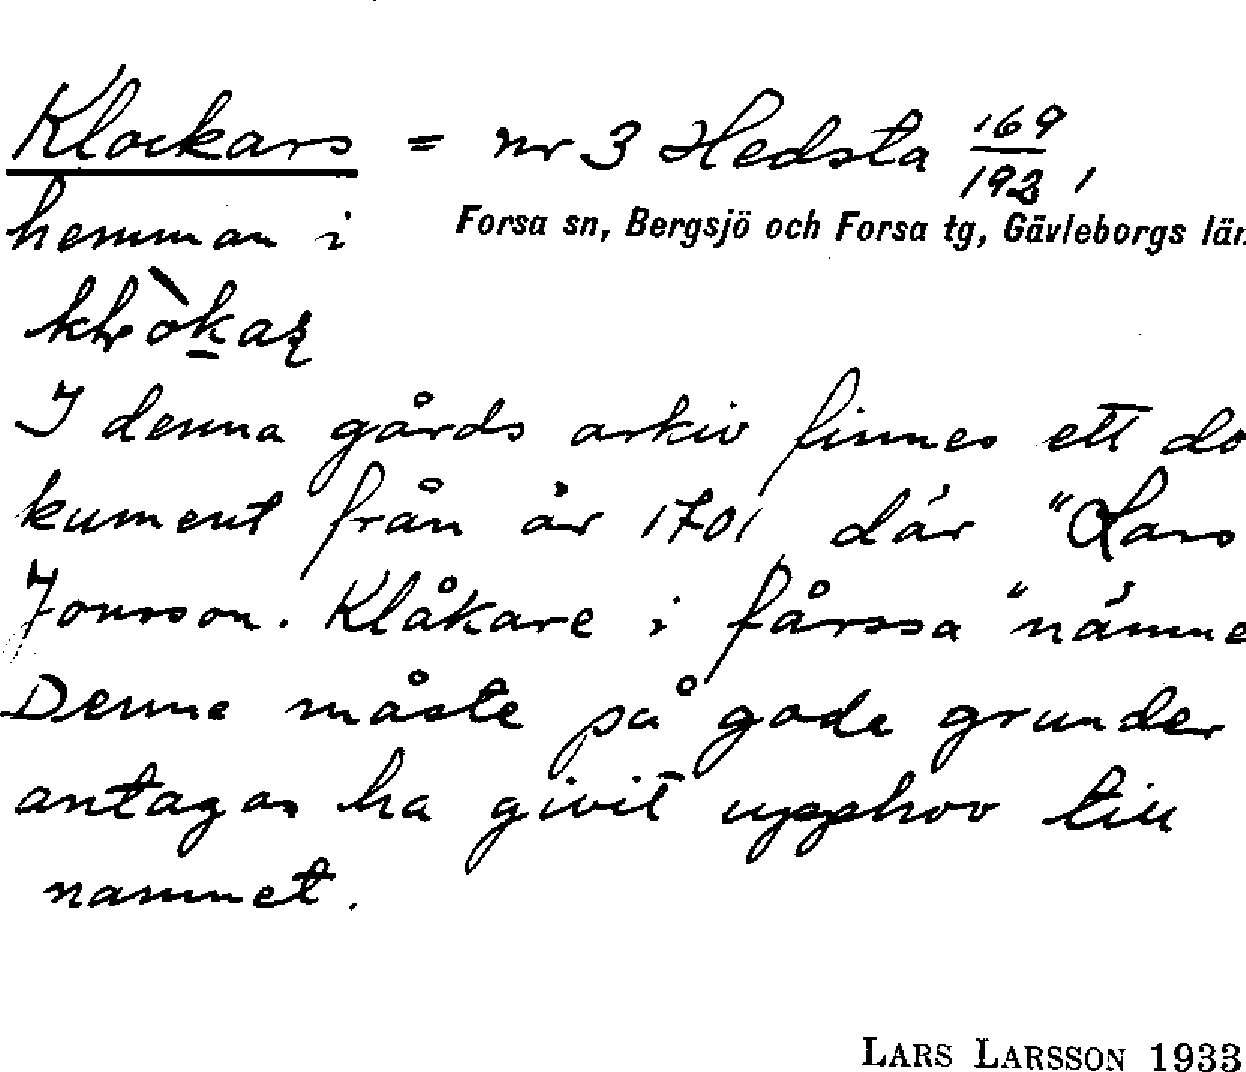 Klockars = nr 3 Hedsta 169/192,
hemman i Forsa sn, Bergsjö och Forsa tg, Gävleborgs län
I denna gårds arkiv finnes ett do
kument från år 1701 där "Lars
Jonsson. Klåkare i fårssa" nämne
Denne måste på goda grunder
antagas ha givit upphov till
namnet.
LARS LARSSON 1933